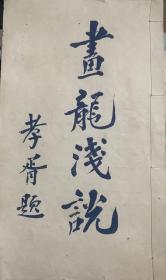 畫龍淺説
孝胥題